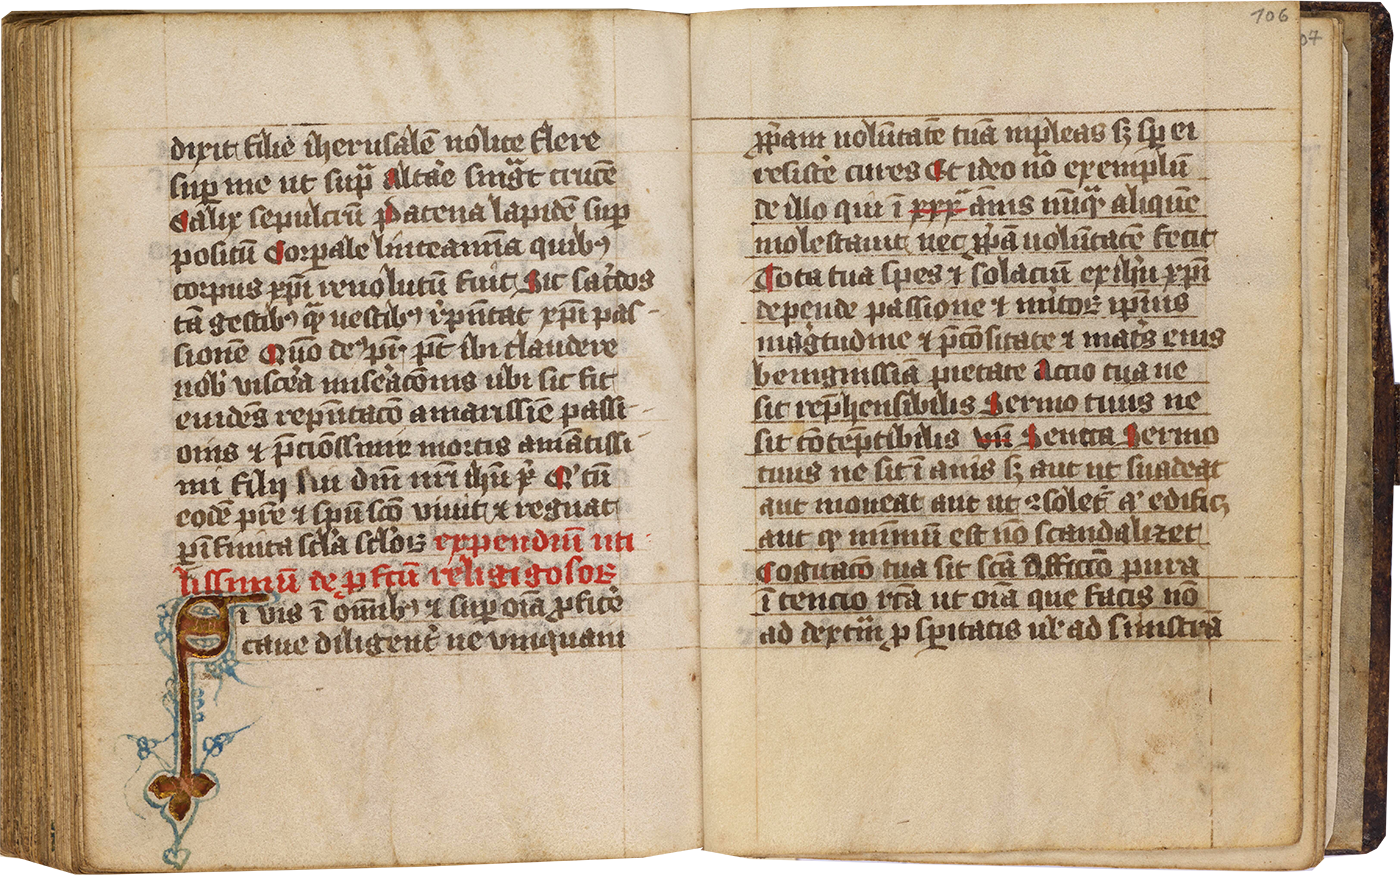 dixit filie iherusalē nolite flere
sup me ut sup̄ Altāe sing̃t crucē
Calix sepulcrū Patena lapidē sup
positū Corꝑale linteamīa quibꝰ
corpus xp̄i reuolutū fuit Sic sac̄dos
tā gestibꝰ q̄ȝ uestibꝰ rep̄ntat xp̄i pas-
sionē
nob̄ viscēa miseācōnis ubi sic fit
euidēs rep̄ntacō amarissīe passi-
onis ⁊ p̄ciosissime mortis amātissi-
mi filij sui dn̄i nr̄i ihū
eodē pr̄e ⁊ sp̄u scō viuit ⁊ regnat
ꝑ īfinita scl̄a scl̄oꝝ expendiū uti
lissimū de ꝓfctū religigosoꝝ
Si vis ī om̄ibꝰ ⁊ sup oīa ꝓficē
caue diligent̄ ne vnquam
106
07
ꝓp̄am uolūtatē tuā inpleas sꝫ sp̄ ei
resistē cures Et ideo nō exemplū
de illo qui ī xxx ānis nūq̄ȝ aliquē
molestauit nec ꝓp̄ā uolūtatē fecit
Tota tua spes ⁊ solaciū ex ihū xp̄i
depende passione ⁊ ip̄ius
magītudine ⁊ p̄ciōsitate ⁊ mat̄s eius
benignissīa pietate Actio tua ne
sit rep̄hensibilis Sermo tuus ne
sit cōtēptibilis vn̄ Seneca Sermo
tuus ne sit īanis sꝫ aut ut suadeat
aut moueat aut ut ꝯsolet̄ edificꝫ
aut qȝ minimū est nō scandalizet
Cogitacō tua sit scā Affectiō pura
ītencio rc̄a ut oīa que facis nō
ad dextrā ꝓspitatis ul̄ ad sinistrā